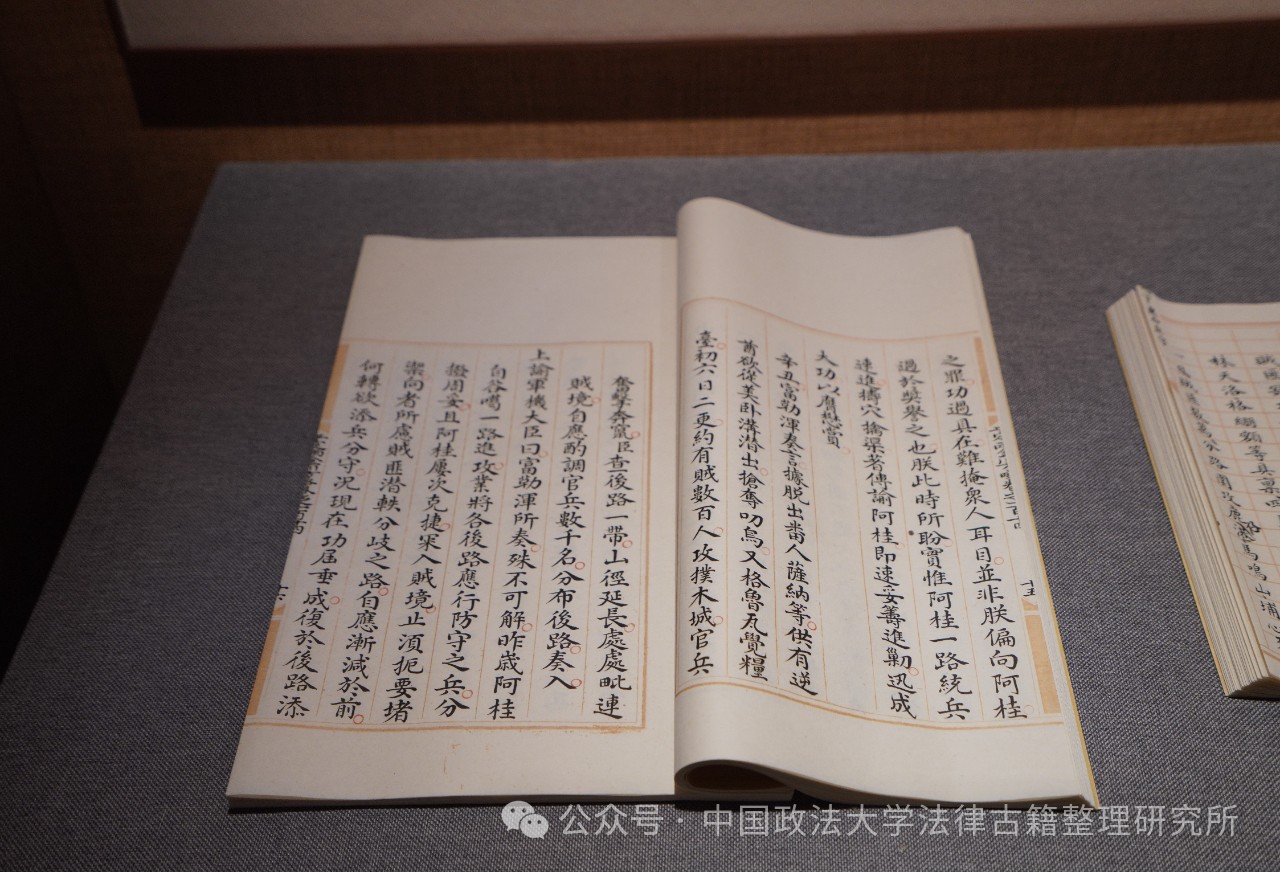 之罪功過具在難掩衆人耳目並非朕偏向阿桂
過於奬譽之也朕此時所盼實惟阿桂一路統兵
速進擣穴擒渠著傳諭阿桂即速妥籌進勦迅成
大功以膺懋賞
辛丑富勒渾奏言據脫出番人薩納等供有逆
酋欲從美臥溝潛出搶奪叨烏又格魯瓦覺糧
臺初六日二更約有賊數百人攻撲木城官兵
奮擊奔竄臣查後路一帶山徑延長處處毗連
賊境自應酌調官兵數千名分布後路奏入
上諭軍機大臣曰富勒渾所奏殊不可解昨歲阿桂
自谷噶一路進攻業將各後路應行防守之兵分
撥周妥且阿桂屢次克捷深入賊境止須扼要堵
禦向者所慮賊匪潛軼分岐之路自應漸減於前
何轉欲添兵分守況現在功屆垂成復於後路添
林天洛格綳額等具禀
馬鳴山埔
公众号·中国政法大学法律古籍整理研究所